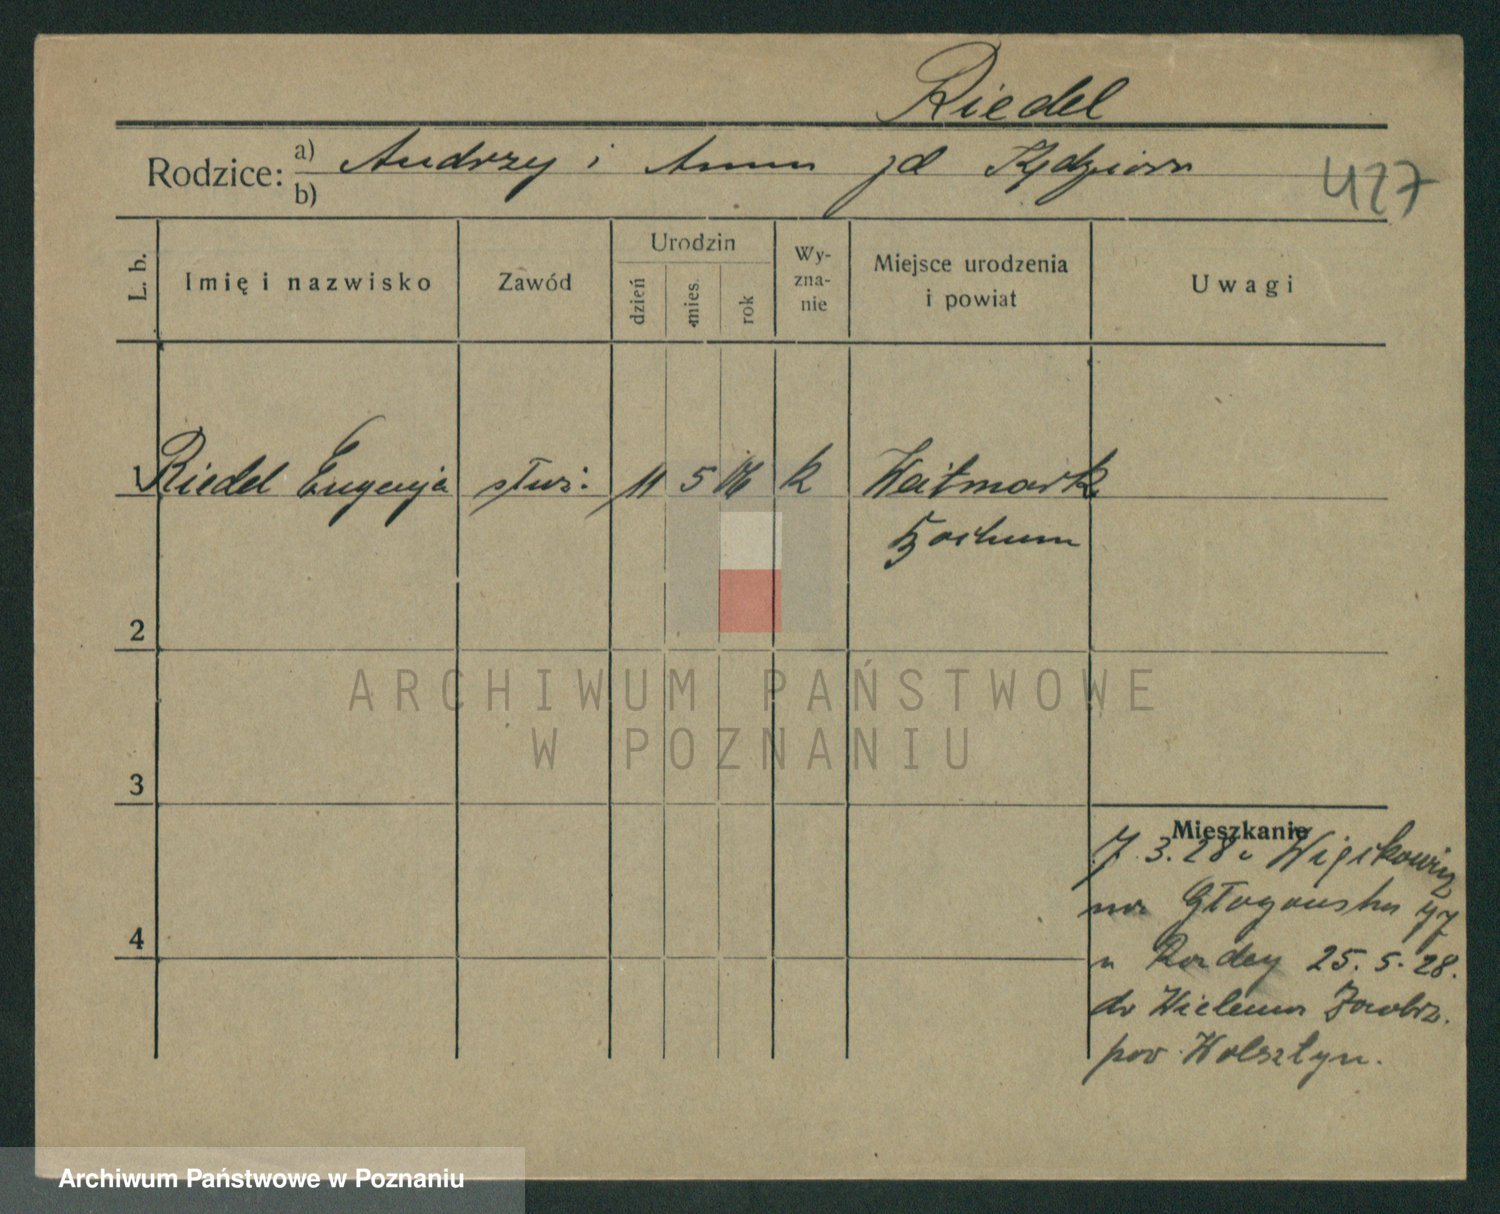 Riedel
Rodzice: a) Andrzej i Anna zd Kędziora
b)
427
L. b.
Imię i nazwisko
Zawód
Urodzin
dzień
mies.
rok
Wy-
zna-
nie
Miejsce urodzenia
i powiat
Uwagi
1 Riedel Eugenja służ: 11 5 06 k Weitmark
Bochum
2
3
4
Mieszkanie
7.3.28 z
Głogowska 97
u 25.5.28.
do Wielenia
pow. Wolsztyn.
ARCHIWUM PAŃSTWOWE
W POZNANIU
Archiwum Państwowe w Poznaniu